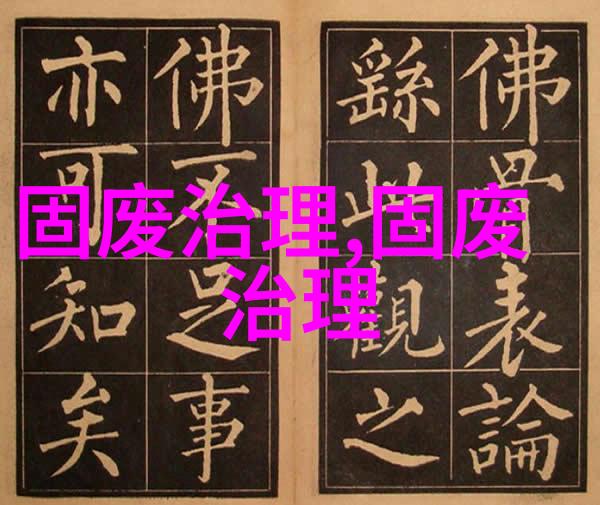 佛骨表論
繇此觀之
佛不足事
亦可知矣
固废治理,固废
治理